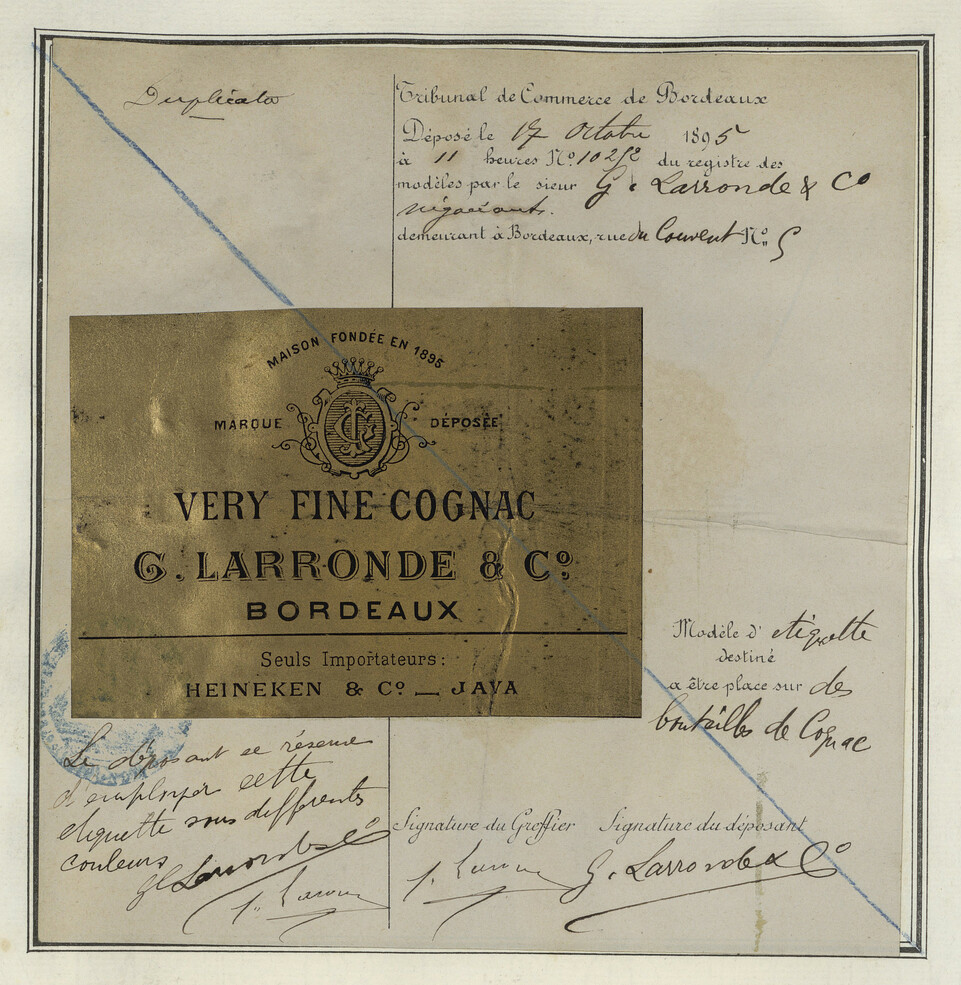 Duplicata
Tribunal de Commerce de Bordeaux
Déposé le 17 Octobre 1895
à 11 heures Nº 10252 du registre des
modèles par le sieur G. Larronde & Cº
négociants.
demeurant à Bordeaux, rue du Couvent Nº 5
MAISON FONDÉE EN 1895
MARQUE DÉPOSÉE
VERY FINE COGNAC
G. LARRONDE & Cº
BORDEAUX
Seuls Importateurs:
HEINEKEN & Cº — JAVA
Modèle d'etiquette
destiné
a être place sur des
bouteilles de Cognac
Le déposant se réserve
d'employer cette
etiquette sous differents
couleurs
G. Larronde & Cº
Signature du Greffier Signature du déposant
G. Larronde & Cº